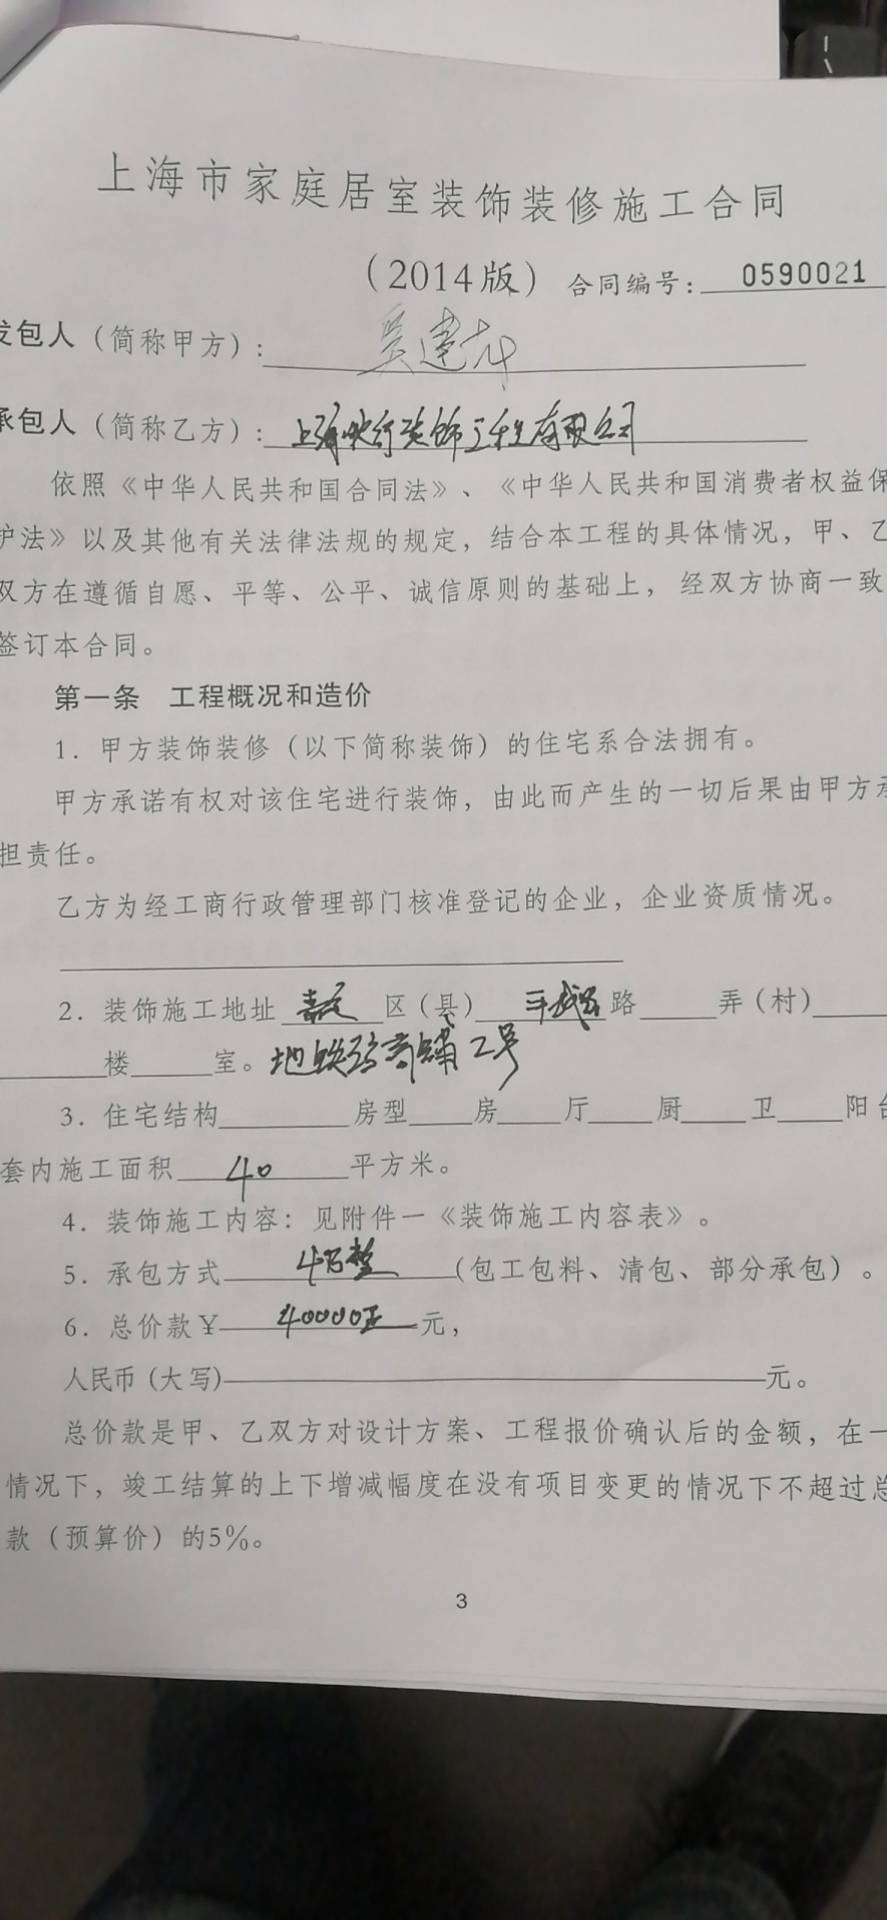 上海市家庭居室装饰装修施工合同
（2014版）合同编号：0590021
发包人（简称甲方）：吴建
承包人（简称乙方）：上海 行装饰工程有限公司
依照《中华人民共和国合同法》、《中华人民共和国消费者权益保
护法》以及其他有关法律法规的规定，结合本工程的具体情况，甲、乙
双方在遵循自愿、平等、公平、诚信原则的基础上，经双方协商一致
签订本合同。
第一条　工程概况和造价
1．甲方装饰装修（以下简称装饰）的住宅系合法拥有。
甲方承诺有权对该住宅进行装饰，由此而产生的一切后果由甲方承
担责任。
乙方为经工商行政管理部门核准登记的企业，企业资质情况。
2．装饰施工地址 嘉定 区（县） 路 弄（村）
楼 室。地铁站商铺2号
3．住宅结构 房型 房 厅 厨 卫 阳台
套内施工面积 40 平方米。
4．装饰施工内容：见附件一《装饰施工内容表》。
5．承包方式 4万整（包工包料、清包、部分承包）。
6．总价款￥ 40000正 元，
人民币（大写） 元。
总价款是甲、乙双方对设计方案、工程报价确认后的金额，在一
情况下，竣工结算的上下增减幅度在没有项目变更的情况下不超过总
款（预算价）的5%。
3